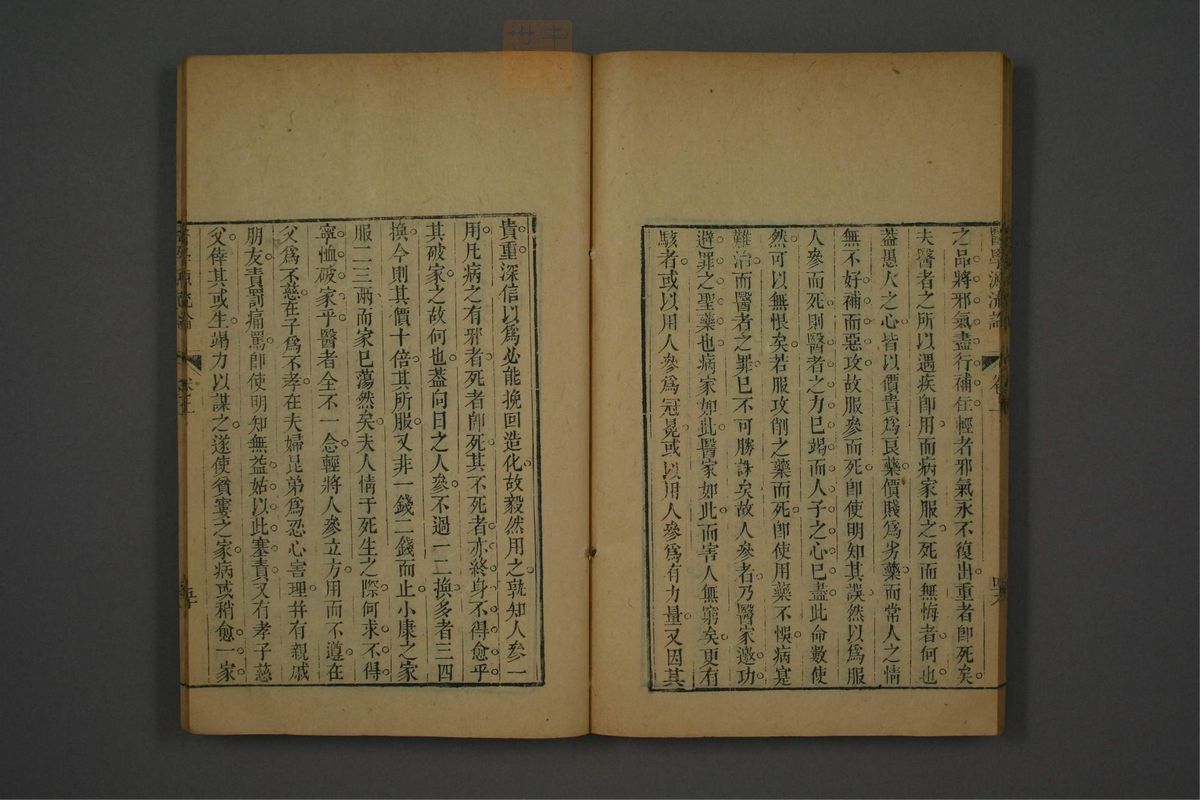 醫學源流論 卷上
之品將邪氣盡行補住輕者邪氣永不復出重者卽死矣
夫醫者之所以遇疾卽用而病家服之死而無悔者何也
葢愚人之心皆以價貴爲良藥價賤爲劣藥而常人之情
無不好補而惡攻故服參而死卽使明知其誤然以爲服
人參而死則醫者之力已竭而人子之心已盡此命數使
然可以無恨矣若服攻削之藥而死卽使用藥不悞病寔
難治而醫者之罪已不可勝誅矣故人參者乃醫家邀功
避罪之聖藥也病家如此醫家如此而害人無窮矣更有
駭者或以用人參爲冠冕或以用人參爲有力量又因其
貴重深信以爲必能挽回造化故毅然用之孰知人參一
用凡病之有邪者死者卽死其不死者亦終身不得愈乎
其破家之故何也葢向日之人參不過一二換多者三四
換今則其價十倍其所服又非一錢二錢而止小康之家
服二三兩而家已蕩然矣夫人情于死生之際何求不得
寧恤破家乎醫者全不一念輕將人參立方用而不遵在
父爲不慈在子爲不孝在夫婦昆弟爲忍心害理幷有親戚
朋友責罰痛罵卽使明知無益姑以此塞責又有孝子慈
父倖其或生竭力以謀之遂使貧窶之家病或稍愈一家
醫學源流論 卷上